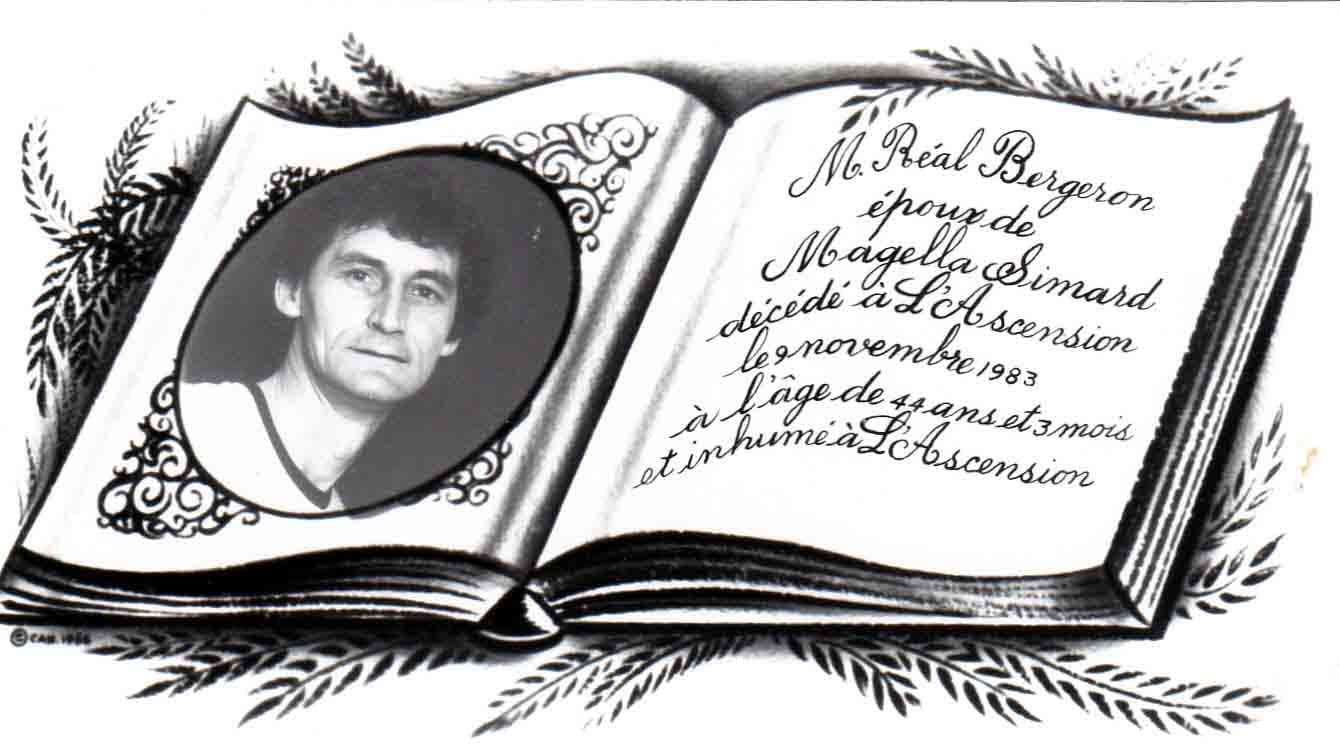 M. Réal Bergeron
époux de
Magella Simard
décédé à L'Ascension
le 9 novembre 1983
à l'âge de 44 ans et 3 mois
et inhumé à L'Ascension
© CAB.